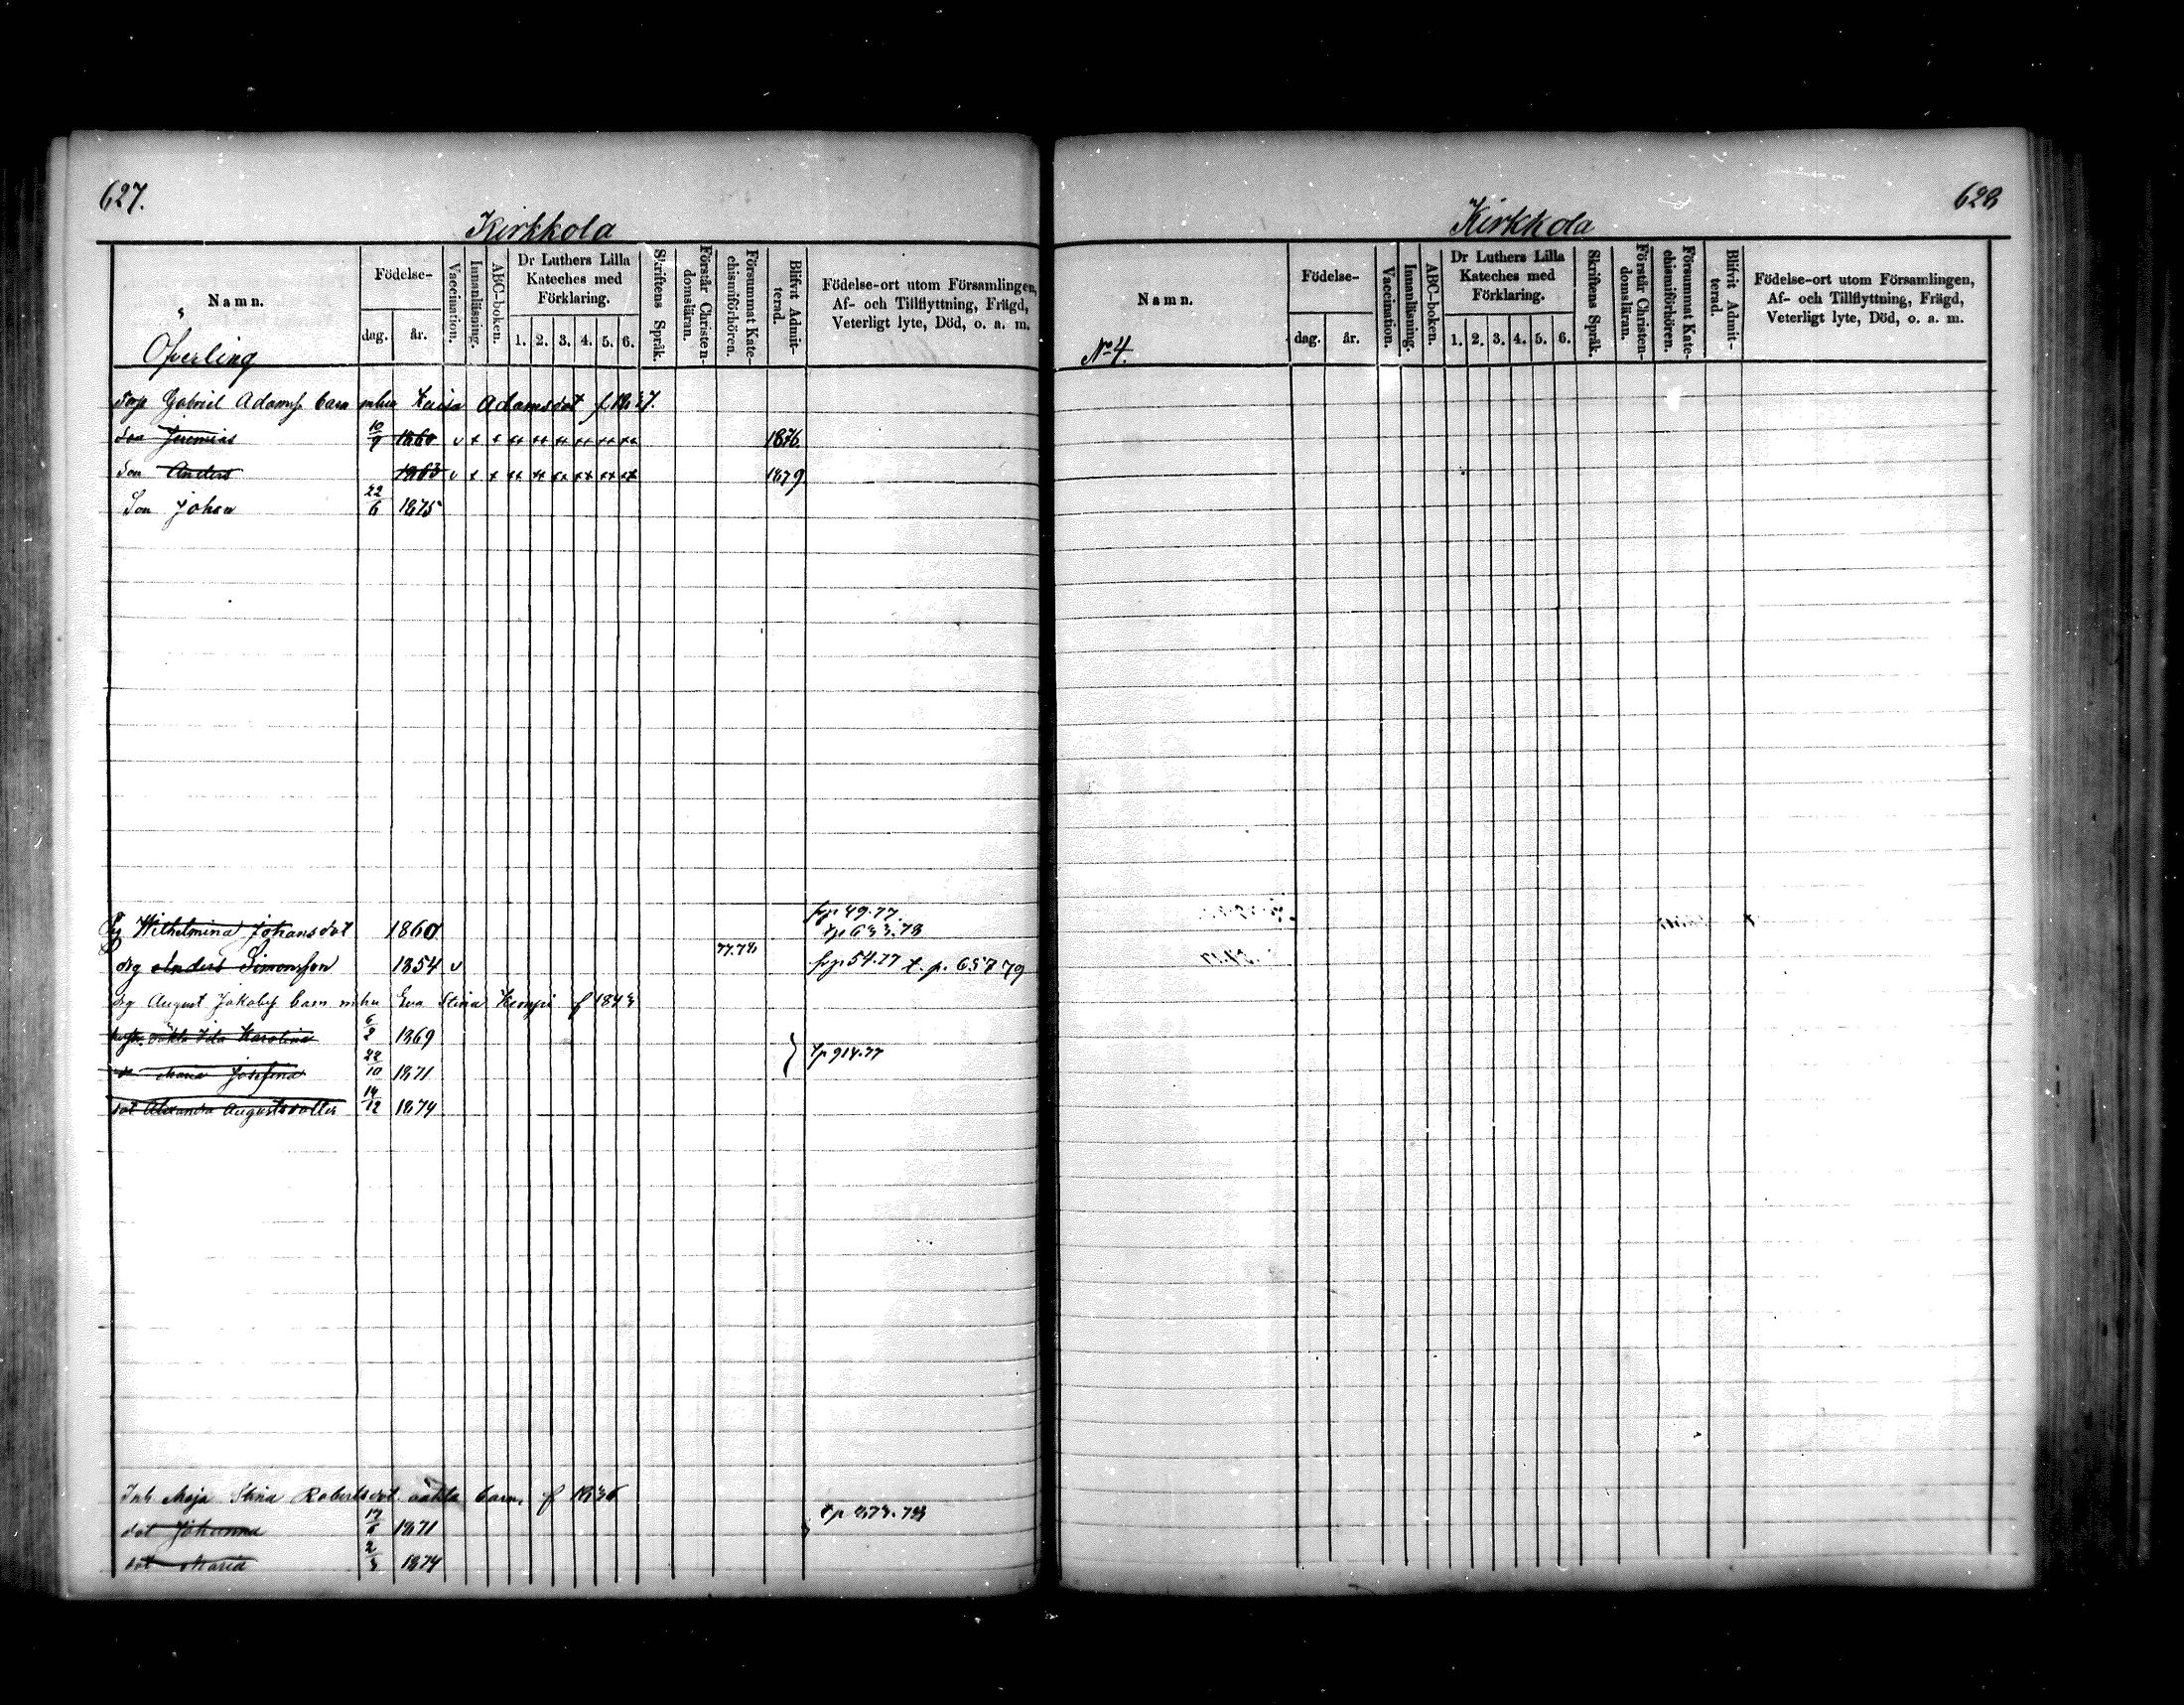 627.
Kirkkola
Namn.
Födelse-
dag.
år.
Vaccination.
Innanläsning.
ABC-boken.
Dr Luthers Lilla Kateches med Förklaring.
1. 2. 3. 4. 5. 6.
Skriftens Språk.
Förstår Christendomsläran.
Försummat Katechismiförhören.
Blifvit Admitterad.
Födelse-ort utom Församlingen, Af- och Tillflyttning, Frägd, Veterligt lyte, Död, o. a. m.
Öfverling
Torp Gabriel Adamss. barn mhu Kaisa Adamsdot f. 1827.
Son Jeremias 10/9 1860 v x x xx xx xx xx xx xx 1876
Son Anders 1863 v x x xx xx xx xx xx xx 1879
Son Johan 22/6 1875
Pig Wilhelmina Johansdot 1860 frp 49.77. tp 633.78
drg Anders Simonsson 1854 v 77.78 frp 54.77 t. p. 657 79
drg August Jakobss barn mhu Eva Stina f 1843
oäkta Ida Karolina 6/2 1869
Maria Josefina 22/10 1871 } tp 918.77
dot Alexandra Augustsdotter 14/12 1874
Inh. Maja Stina Robertsdot. oäkta barn f 1836
dot Johanna 17/6 1871 tp 273.78
dot Maria 2/3 1874
628
Kirkkola
Namn.
No 4.
Födelse-
dag.
år.
Vaccination.
Innanläsning.
ABC-boken.
Dr Luthers Lilla Kateches med Förklaring.
1. 2. 3. 4. 5. 6.
Skriftens Språk.
Förstår Christendomsläran.
Försummat Katechismiförhören.
Blifvit Admitterad.
Födelse-ort utom Församlingen, Af- och Tillflyttning, Frägd, Veterligt lyte, Död, o. a. m.